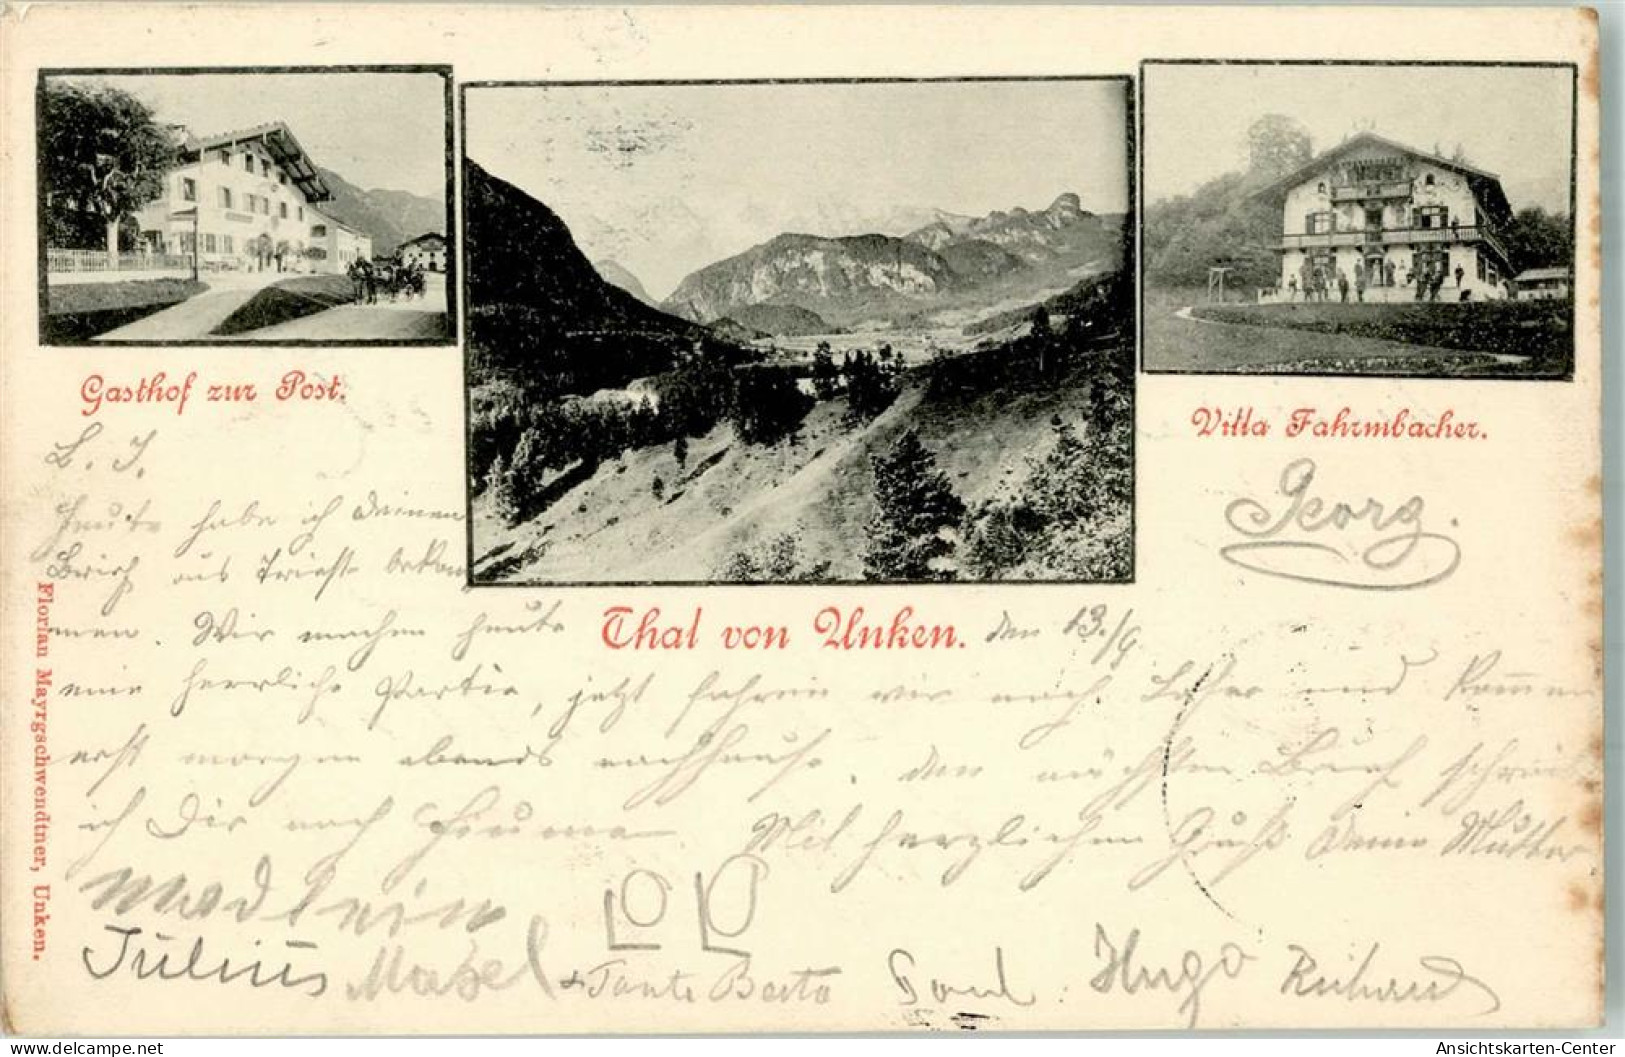 Gasthof zur Post.
Villa Fahrmbacher.
Thal von Unken.
Florian Mayrgschwendtner, Unken.
L. J.
Heute habe ich deinen
Brief aus Triest bekom
men. Wir machen heute
den 13./9
eine herrliche Partie, jetzt fahren wir nach Lofer und kommen
erst morgen abends nachhause. den nächsten Brief schreibe
ich Dir nach Fiume. Mit herzlichem Gruß Deine Mutter
Georg.
Madlein
LOLO
Julius Mabel + Tante Berta Paul. Hugo Richard
Ansichtskarten-Center